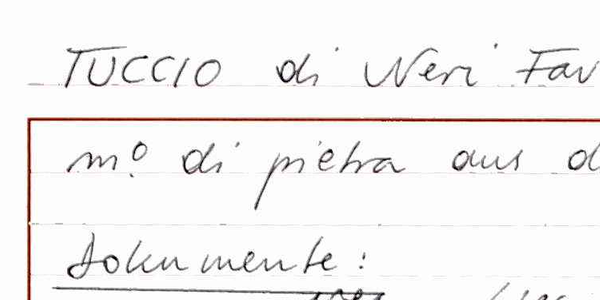 TUCCIO di Neri Fav
m.º di pietra aus d
Dokumente: